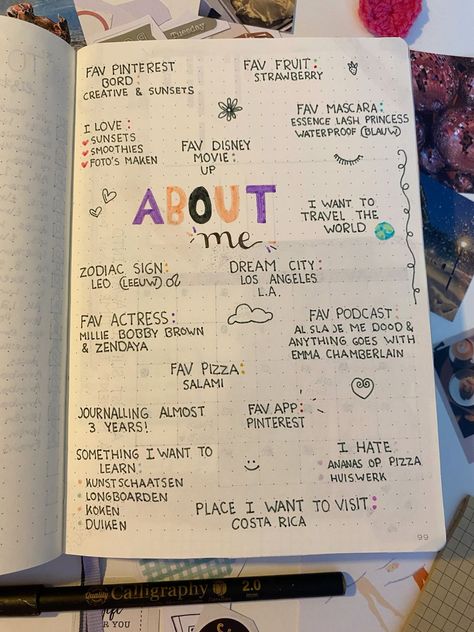 Tuesday
FAV PINTEREST
BORD:
CREATIVE & SUNSETS
FAV FRUIT:
STRAWBERRY
I LOVE:
SUNSETS
SMOOTHIES
FOTO'S MAKEN
FAV DISNEY
MOVIE:
UP
FAV MASCARA:
ESSENCE LASH PRINCESS
WATERPROOF (BLAUW)
ABOUT
me
I WANT TO
TRAVEL THE
WORLD
ZODIAC SIGN:
LEO (LEEUW) ♌
DREAM CITY:
LOS ANGELES
L.A.
FAV ACTRESS:
MILLIE BOBBY BROWN
& ZENDAYA
FAV PODCAST:
AL SLA JE ME DOOD &
ANYTHING GOES WITH
EMMA CHAMBERLAIN
FAV PIZZA:
SALAMI
JOURNALLING ALMOST
3 YEARS!
FAV APP:
PINTEREST
SOMETHING I WANT TO
LEARN:
KUNSTSCHAATSEN
LONGBOARDEN
KOKEN
DUIKEN
I HATE:
ANANAS OP PIZZA
HUISWERK
PLACE I WANT TO VISIT:
COSTA RICA
99
Quality Calligraphy 2.0
FOR YOU